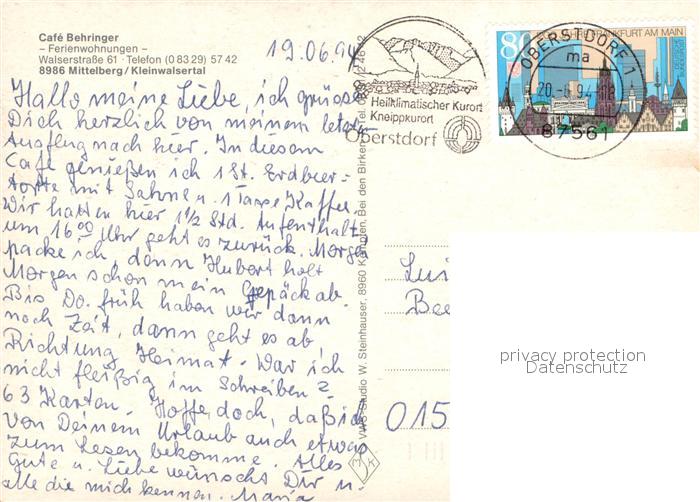 Café Behringer
– Ferienwohnungen –
Walserstraße 61 · Telefon (0 83 29) 57 42
8986 Mittelberg / Kleinwalsertal
19.06.94
Hallo meine Liebe, ich grüsse
Dich herzlich von meinem letzten
Ausflug nach hier. In diesem
Café genießen ich 1 St. Erdbeer-
torte mit Sahne u. 1 Tasse Kaffee.
Wir hatten hier 1 1/2 Std. Aufenthalt,
um 16⁰⁰ Uhr geht es zurück. Morgen
packe ich, dann Hubert holt
Morgen schon mein Gepäck ab.
Bis Do. früh haben wir dann
noch Zeit, dann geht es ab
Richtung Heimat. War ich
nicht fleißig im Schreiben?
63 Karten. Hoffe doch, daß ich
von Deinem Urlaub auch etwas
zum Lesen bekomme. Alles
Gute u. Liebe wünscht Dir u.
alle die mich kennen. Maria
Heilklimatischer Kurort
Kneippkurort
Oberstdorf
80
FRANKFURT AM MAIN
OBERSTDORF 1
ma
20.-6.94-18
87561
VWS Studio W. Steinhauser, 8960 Kempten, Bei den Birken
MK
015
privacy protection
Datenschutz